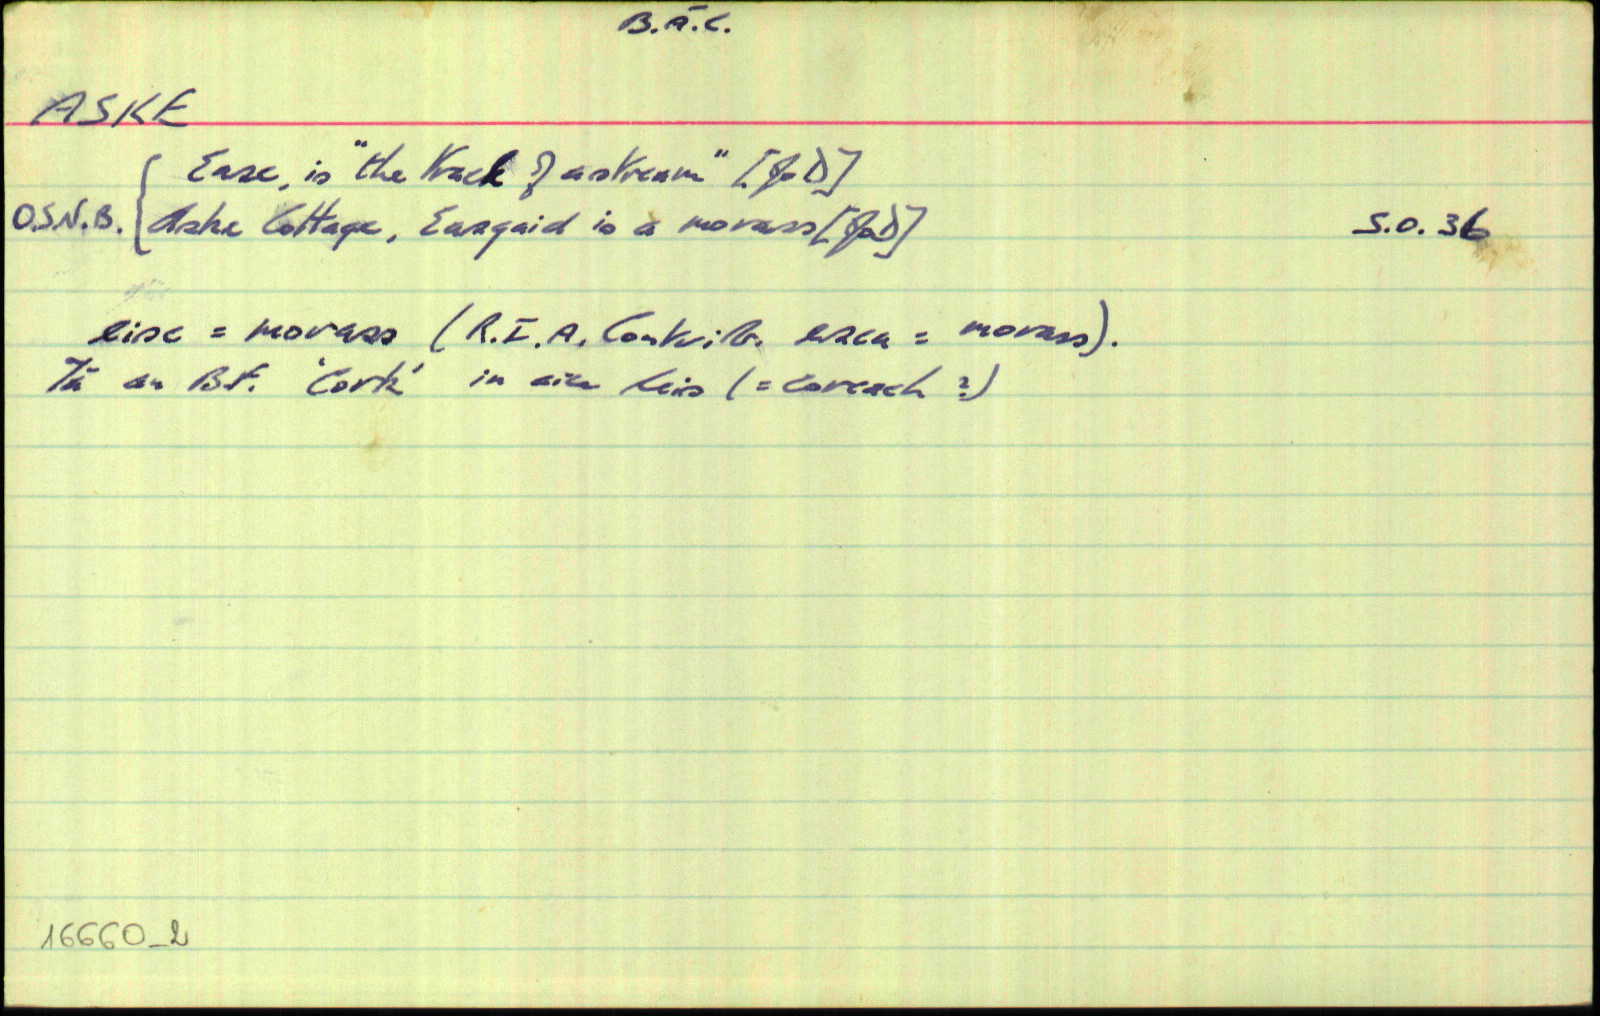 B.Á.C.
ASKE
Easc, is "the track of a stream" [JoD]
O.S.N.B. Aske Cottage, Easgaid is a morass [JoD] S.O. 36
eisc = morass (R.I.A. Contrib. esca = morass).
Tá an B.F. 'Cork' in aice leis (= Corcach ?)
16660_2